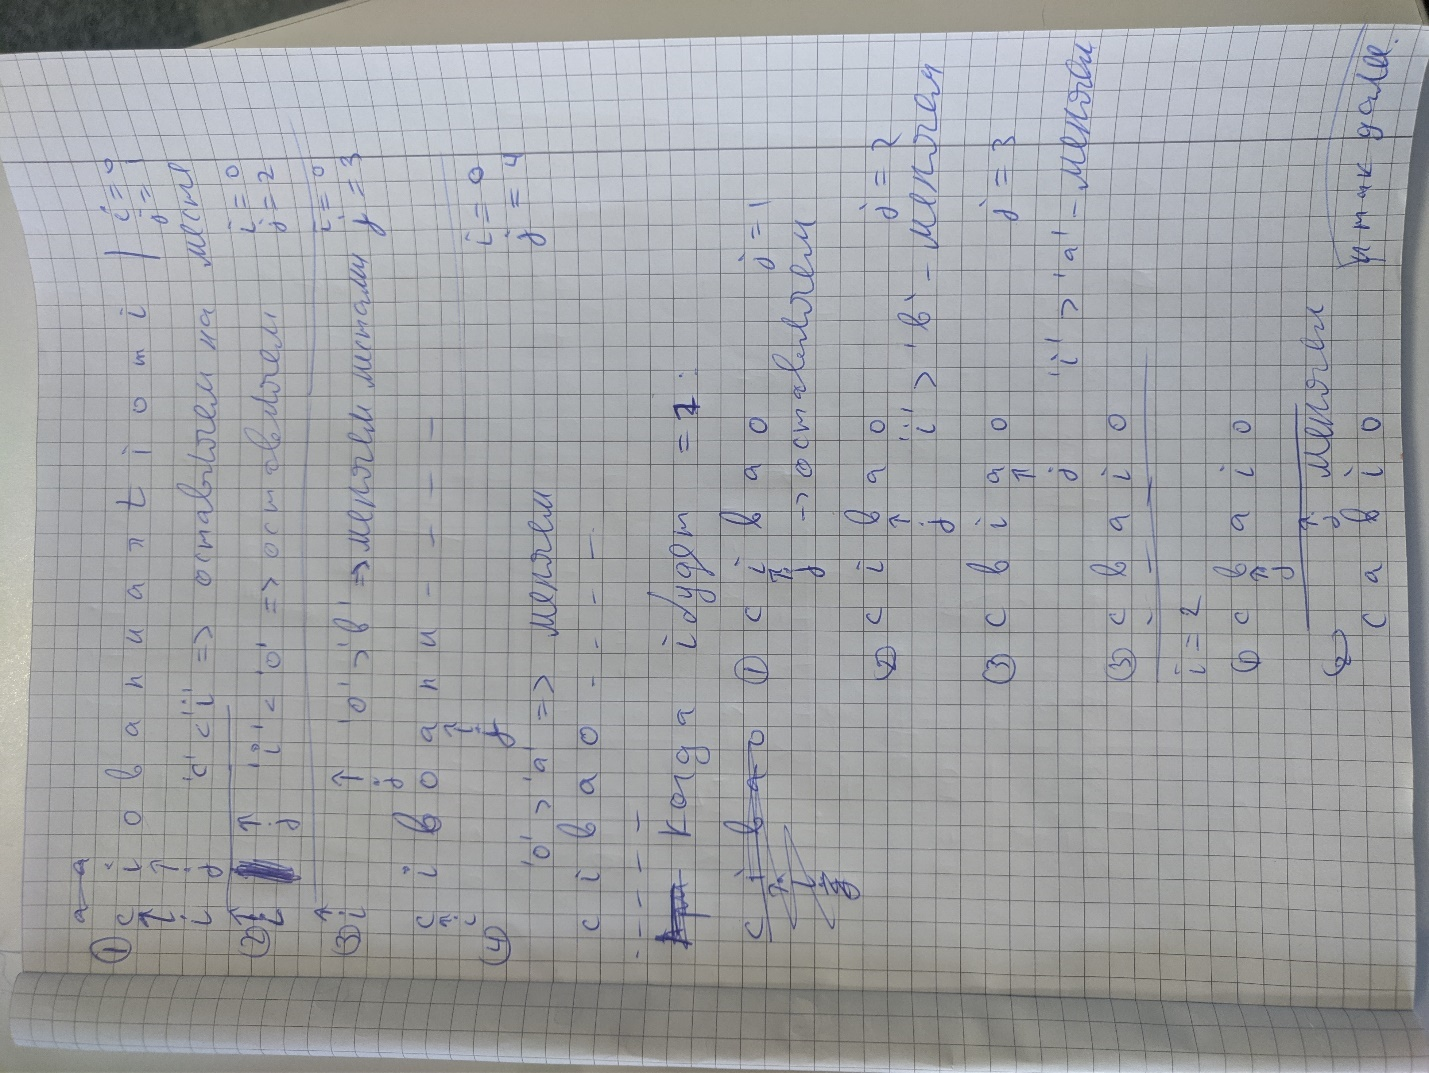 ① c i o b a n u a n t i o m i | i=0
j=1
'c' < 'i' => оставляем на месте
② 'i' < 'o' => оставляем
i=0
j=2
③ 'o' > 'b' => меняем местами
i=0
j=3
c i b o a n u - - - - -
④
i=0
j=4
'o' > 'a' => меняем
c i b a o - - - - -
когда i будет = 1:
① c i b a o j=1
-> оставляем
② c i b a o j=2
'i' > 'b' - меняем
③ c b i a o j=3
'i' > 'a' - меняем
③ c b a i o
i=2
① c b a i o
② меняем
c a b i o
и так далее.